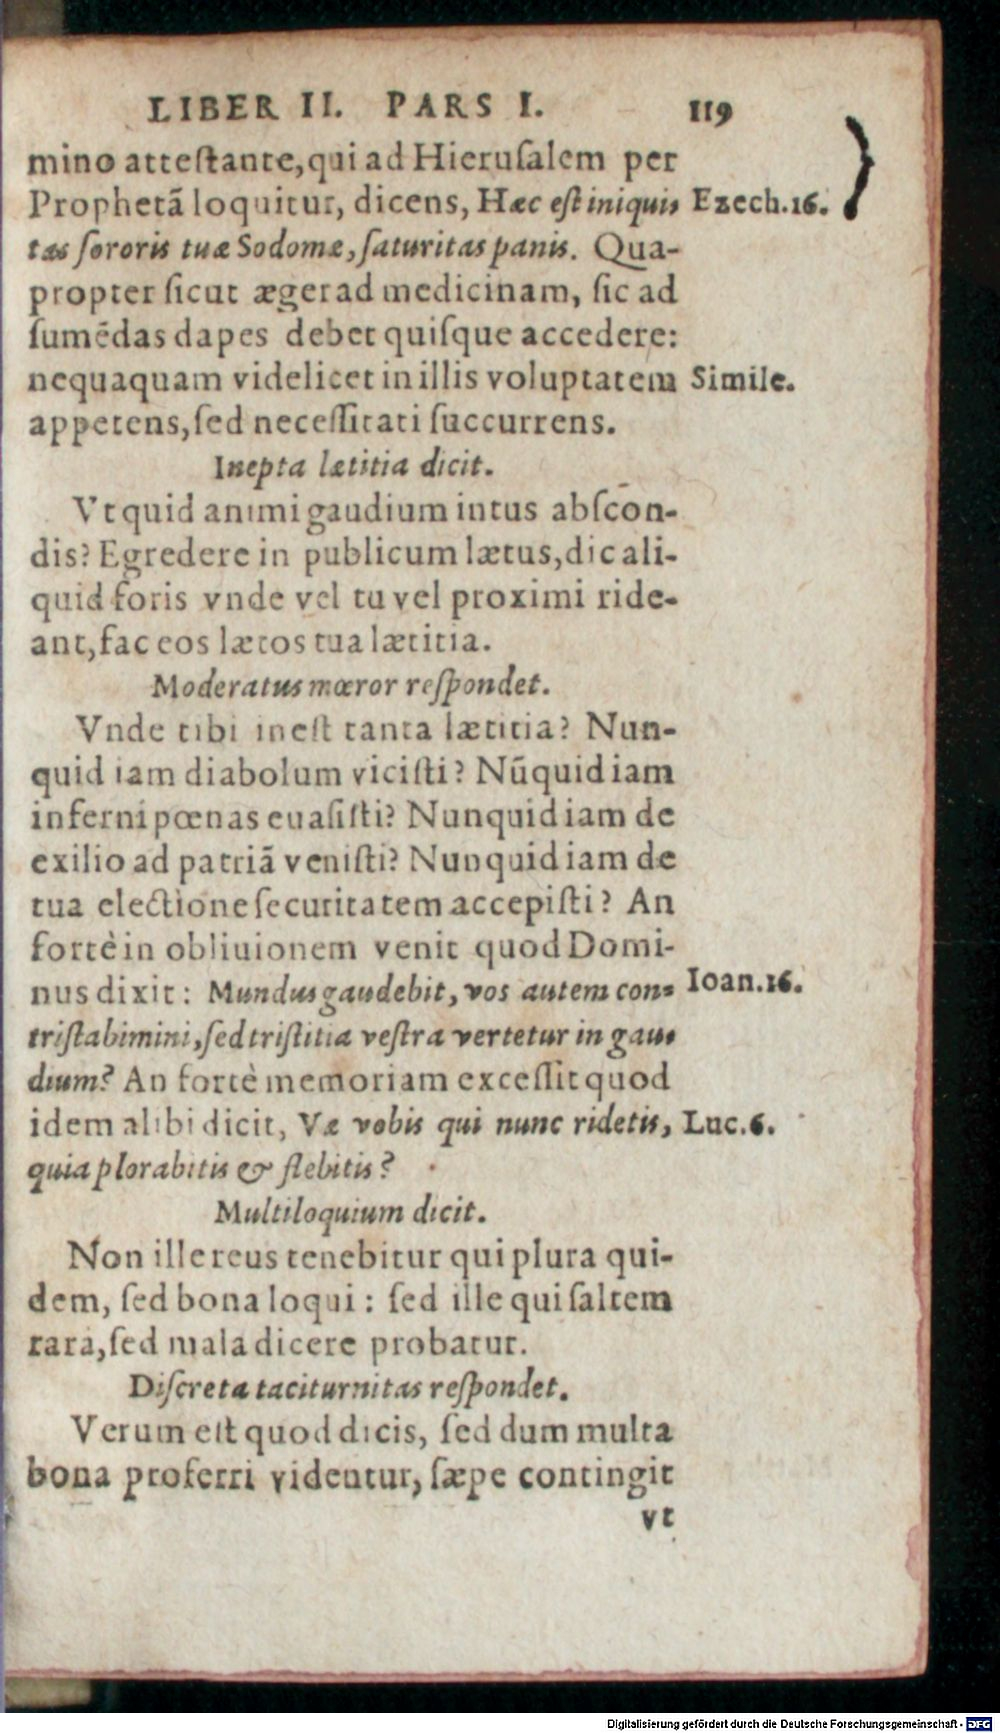 LIBER II. PARS I. 119
mino attestante, qui ad Hierusalem per
Prophetã loquitur, dicens, Hæc est iniqui- Ezech.16.
tas sororis tuæ Sodomæ, saturitas panis. Qua-
propter sicut æger ad medicinam, sic ad
sumẽdas dapes debet quisque accedere:
nequaquam videlicet in illis voluptatem Simile.
appetens, sed necessitati succurrens.
Inepta lætitia dicit.
Vt quid animi gaudium intus abscon-
dis? Egredere in publicum lætus, dic ali-
quid foris vnde vel tu vel proximi ride-
ant, fac eos lætos tua lætitia.
Moderatus mœror respondet.
Vnde tibi inest tanta lætitia? Nun-
quid iam diabolum vicisti? Nũquid iam
inferni pœnas euasisti? Nunquid iam de
exilio ad patriã venisti? Nunquid iam de
tua electione securitatem accepisti? An
fortè in obliuionem venit quod Domi-
nus dixit: Mundus gaudebit, vos autem con- Ioan.16.
tristabimini, sed tristitia vestra vertetur in gau-
dium? An fortè memoriam excessit quod
idem alibi dicit, Væ vobis qui nunc ridetis, Luc.6.
quia plorabitis & flebitis?
Multiloquium dicit.
Non ille reus tenebitur qui plura qui-
dem, sed bona loqui: sed ille qui saltem
rara, sed mala dicere probatur.
Discreta taciturnitas respondet.
Verum est quod dicis, sed dum multa
bona proferri videntur, sæpe contingit
vt
Digitalisierung gefördert durch die Deutsche Forschungsgemeinschaft - DFG